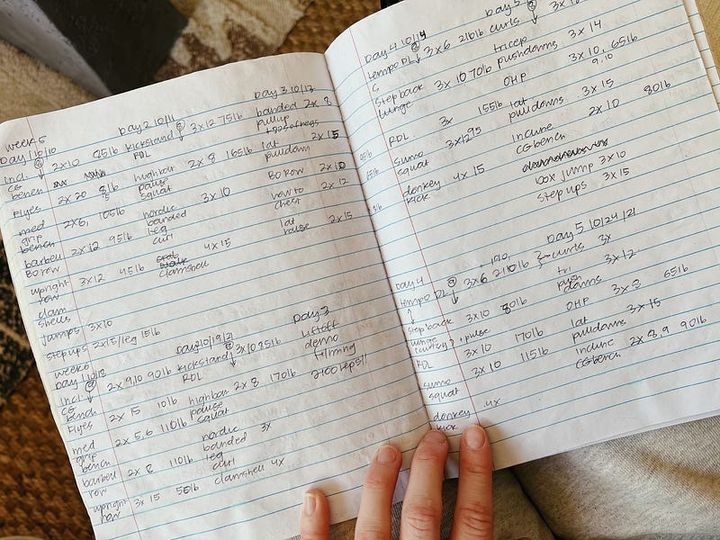 week 5
Day 1 10/10
Day 2 10/11
Day 3 10/12
incl. 2x10 85lb
CG
bench
kickstand 3x12 75lb
RDL
banded 2x8
pullup
Flyes 2x20 8lb
highbar 2x8 165lb
pause
squat
lat 2x15
pulldown
med 2x6, 105lb
grip
bench
nordic 3x10
banded
leg
curl
BO row 2x10
barbell 2x12 95lb
BO row
row to 2x12
chest
upright 3x12 45lb
row
4x15
clamshell
lat 2x15
raise
clam
shells
jumps 3x10
step ups 2x15/leg 15lb
week 6
Day 1 10/18
Day 2 10/19/21
Day 3
incl. 2x9,10 90lb
CG
bench
kickstand 3x10 85lb
RDL
liftoff
demo
filming
2100 reps!!
Flyes 2x15 10lb
highbar 2x8 170lb
pause
squat
med 2x5,6 110lb
grip
bench
nordic 3x
banded
leg
curl
barbell 2x8 110lb
row
clamshell 4x
upright 3x15 55lb
row
Day 4 10/14
Day 5
tempo DL 3x6 210lb
curls 3x10
step back 3x10 70lb
lunge
tricep 3x14
pushdowns
RDL 3x 155lb
OHP 3x10, 65lb
9,10
sumo 3x12 95
squat
lat 3x15
pulldowns
donkey 4x15
kick
incline 2x10 80lb
CG bench
box jump 3x10
step ups 3x15
Day 4
Day 5 10/24/21
tempo DL 3x6 210lb
curls 3x
step back 3x10 80lb
lunge
tri 3x12
push
downs
RDL 3x10 170lb
OHP 3x8 65lb
sumo 3x10 115lb
squat
lat 3x15
pulldowns
donkey 4x
kick
incline 2x8,9 90lb
CG bench